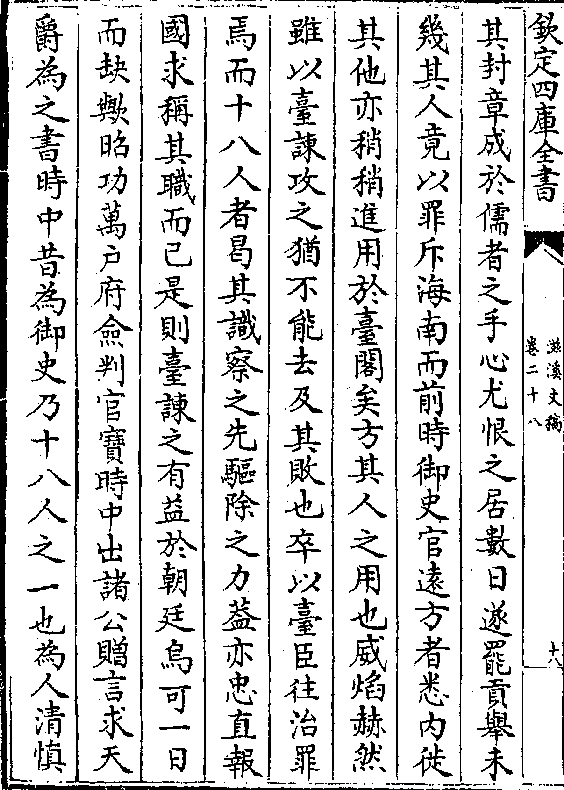 欽定四庫全書
滋溪文稿
卷二十八
十八
其封章成於儒者之手心尤恨之居數日遂罷貢舉未
幾其人竟以罪斥海南而前時御史官遠方者悉内徙
其他亦稍稍進用於臺閣矣方其人之用也威焰赫然
雖以臺諫攻之猶不能去及其敗也卒以臺臣往治罪
焉而十八人者曷其識察之先驅除之力葢亦忠直報
國求稱其職而已是則臺諫之有益於朝廷烏可一日
而缺歟昭功萬户府僉判官寶時中出諸公贈言求天
爵為之書時中昔為御史乃十八人之一也為人清慎